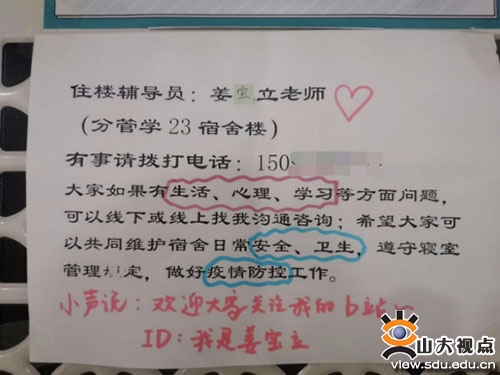 住楼辅导员：姜宝立老师
（分管学23宿舍楼）
有事请拨打电话：150
大家如果有生活、心理、学习等方面问题，
可以线下或线上找我沟通咨询；希望大家可
以共同维护宿舍日常安全、卫生，遵守寝室
管理 定，做好疫情防控工作。
小声说：欢迎大家关注我的b站~
ID：我是姜宝立
山大视点
view.sdu.edu.cn